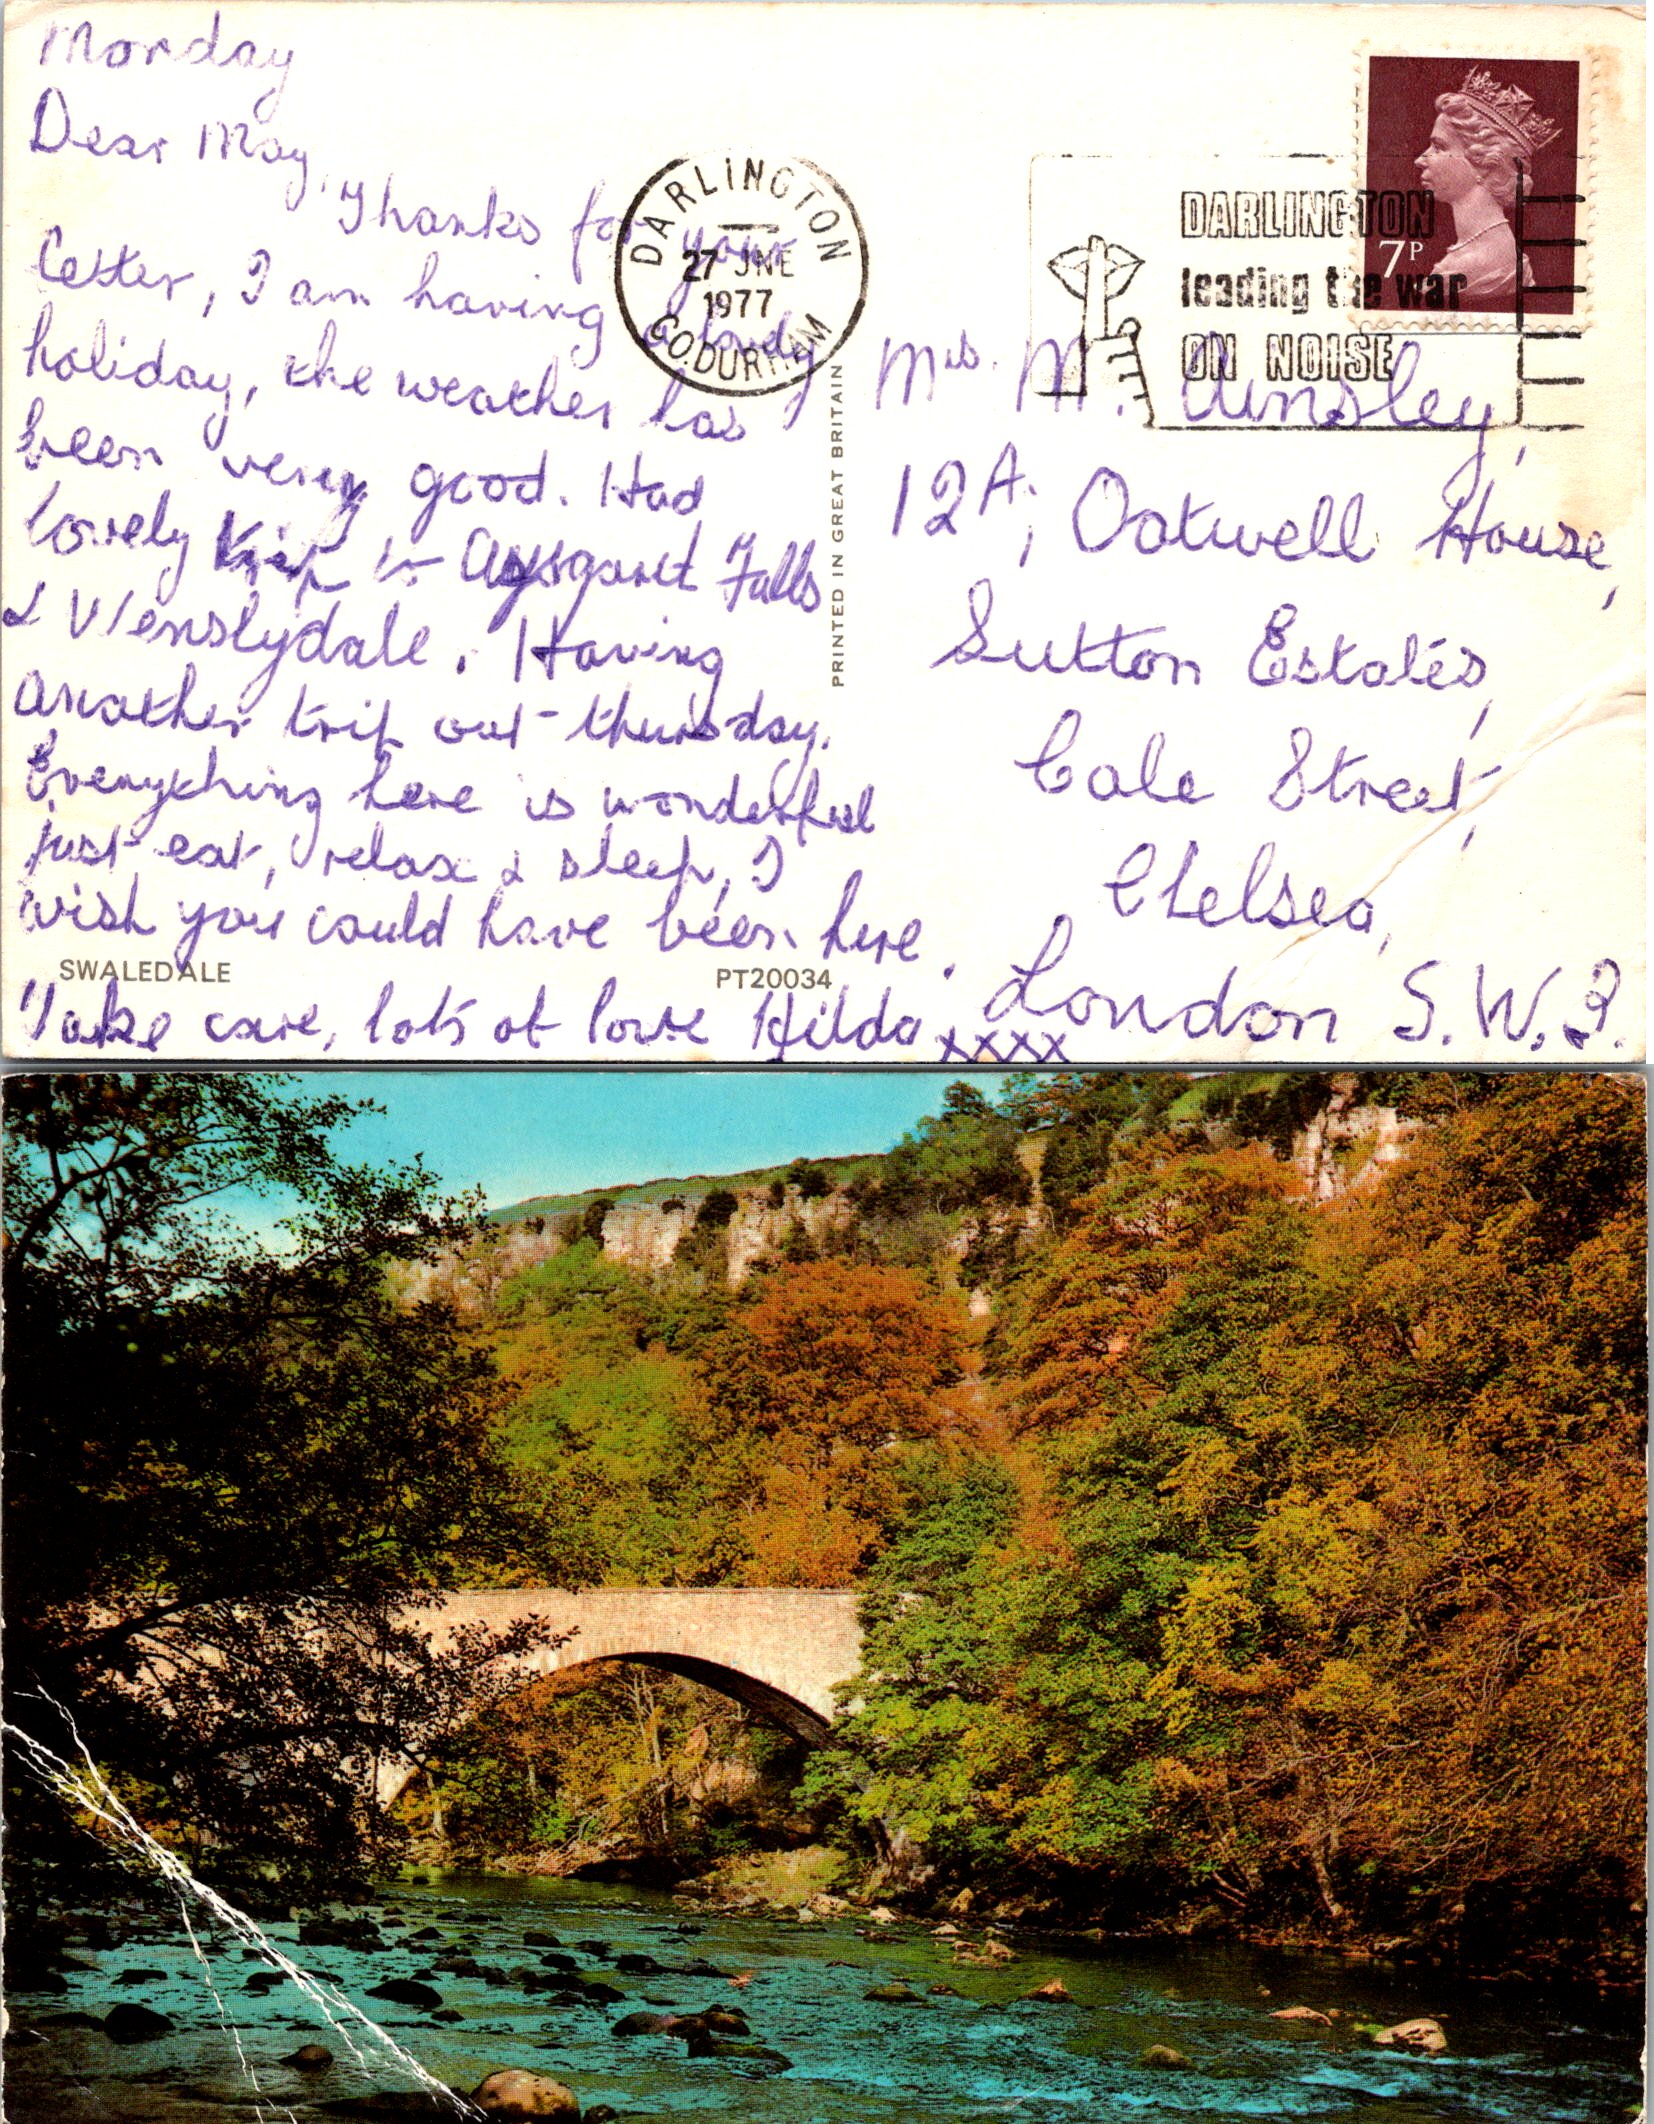 Monday
Dear May,
Thanks for your
Letter, I am having a lovely
holiday, the weather has
been very good. Had
lovely trip to Aysgarth Falls
& Wenslydale. Having
another trip out thursday.
Everything here is wonderful
just eat, relax & sleep, I
wish you could have been here.
Take care, lots of love Hilda xxxx
SWALEDALE
PT20034
PRINTED IN GREAT BRITAIN
DARLINGTON
27 JNE
1977
CO. DURHAM
DARLINGTON
leading the war
ON NOISE
7P
Mrs. M. Ainsley,
12A, Oatwell House,
Sutton Estates,
Cale Street,
Chelsea,
London S.W.3.